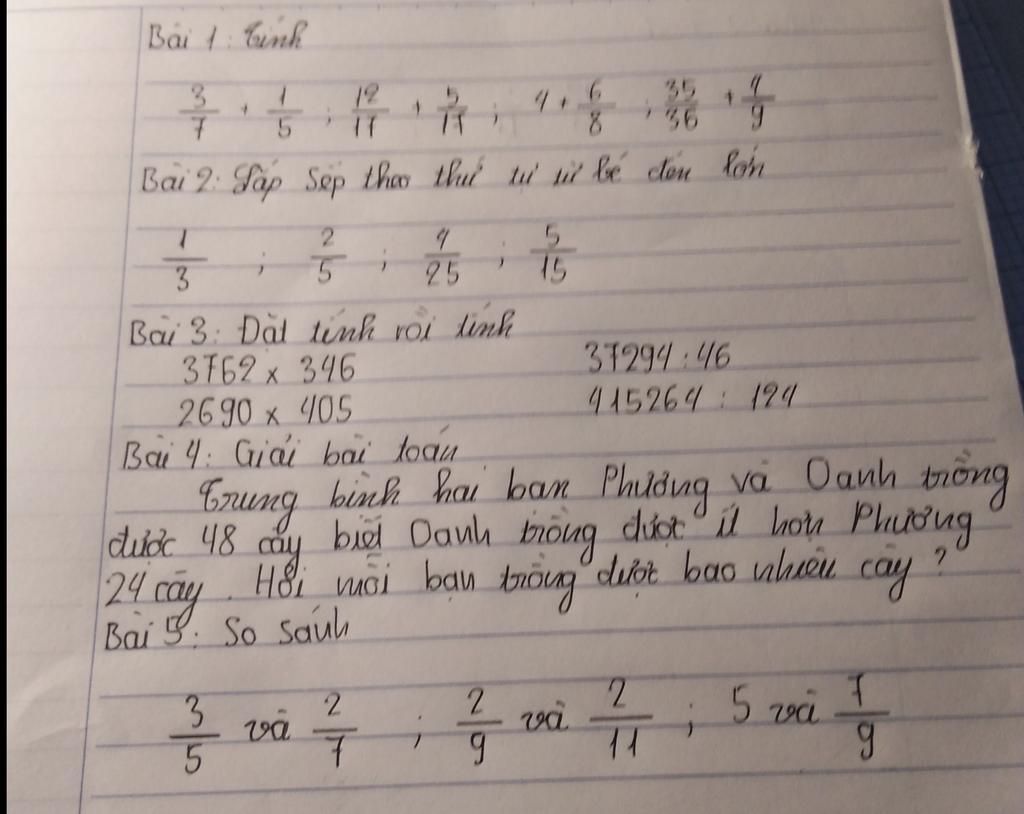 Bài 1: Tính
3/7 + 1/5 ; 12/17 + 5/17 ; 4 + 6/8 ; 35/36 + 4/9
Bài 2: Sắp sếp theo thứ tự từ bé đến lớn
1/3 ; 2/5 ; 4/25 ; 5/15
Bài 3: Đặt tính rồi tính
3762 x 346 37294 : 46
2690 x 405 415264 : 124
Bài 4: Giải bài toán
Trung bình hai bạn Phương và Oanh trồng
được 48 cây biết Oanh trồng được ít hơn Phương
24 cây. Hỏi mỗi bạn trồng được bao nhiêu cây ?
Bài 5: So sánh
3/5 và 2/7 ; 2/9 và 2/11 ; 5 và 7/9